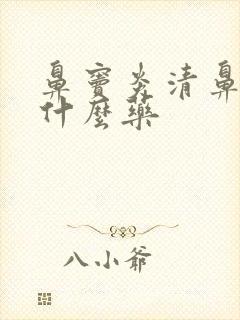 鼻窦炎清鼻
什麼藥
八小爷